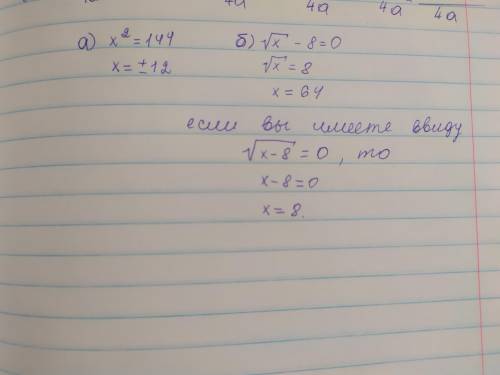 4a 4a 4a 4a
а) x² = 144
x = ±12
б) √x - 8 = 0
√x = 8
x = 64
если вы имеете ввиду
√(x-8) = 0, то
x - 8 = 0
x = 8.